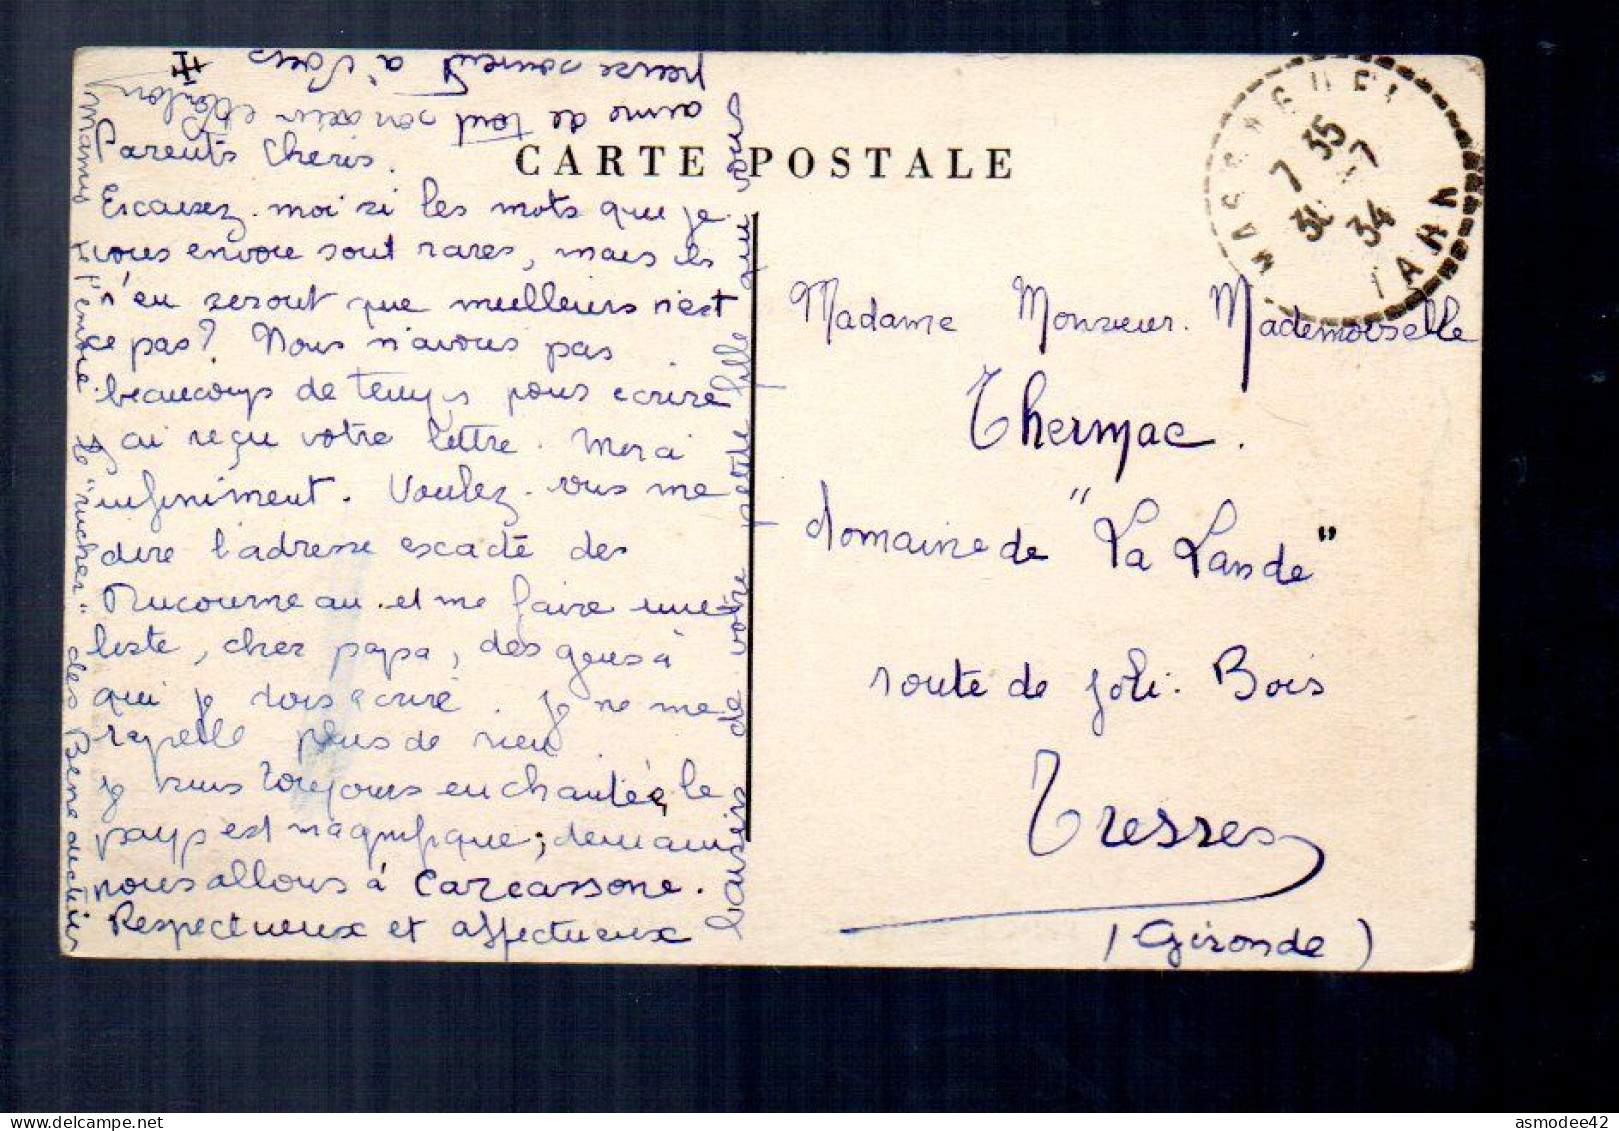 CARTE POSTALE
Parents Cheris.
Excusez-moi si les mots que je
vous envoie sont rares, mais ils
n'en seront que meilleurs n'est
ce pas? Nous n'avons pas
beaucoup de temps pour ecrire
j'ai reçu votre lettre. Merci
infiniment. Voulez-vous me
dire l'adresse exacte des
et me faire une
liste, cher papa, des gens à
qui je dois ecrire. Je ne me
rapelle plus de rien
je suis toujours enchantée, le
pays est magnifique; demain
nous allons à Carcassone.
Respectueux et affectueux
baisers de votre petite fille qui vous
aime de tout son cœur et
pense souvent à vous
Mamy je t'envoie le "rucher" des Benedictins
7 35
31 -7
34
TARN
Madame Monsieur. Mademoiselle
Thermac.
domaine de "La Lande"
route de Joli-Bois
Tresses
(Gironde)
asmodee42